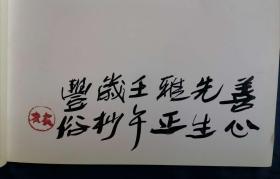 善心
先生
雅正
壬午
歲杪
豐俗